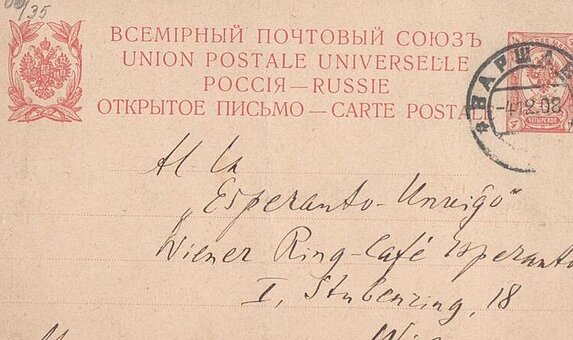 35
ВСЕМІРНЫЙ ПОЧТОВЫЙ СОЮЗЪ
UNION POSTALE UNIVERSELLE
РОССІЯ — RUSSIE
ОТКРЫТОЕ ПИСЬМО — CARTE POSTALE
ВАРШАВ
-4.12.08
ЧЕТЫРЕ КОП
Al la
„Esperanto-Unuiĝo"
Wiener Ring-Café Esperanto
I, Stubenring, 18